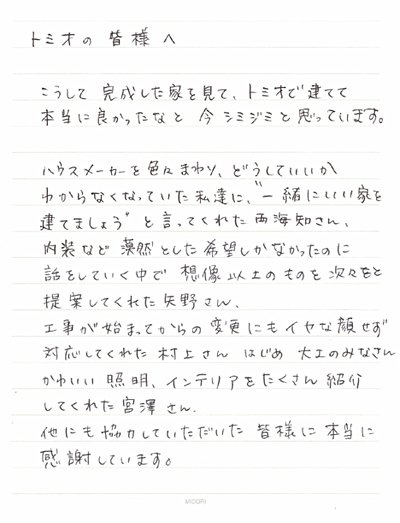 トミオの 皆様へ
こうして 完成した家を見て、トミオで建てて
本当に良かったなと 今 シミジミと思っています。
ハウスメーカーを色々まわり、どうしていいか
わからなくなっていた私達に、"一緒にいい家を
建てましょう"と言ってくれた西海知さん、
内装など 漠然とした希望しかなかったのに
話をしていく中で 想像以上のものを次々と
提案してくれた矢野さん、
工事が始まってからの変更にもイヤな顔せず
対応してくれた 村上さん はじめ 大工のみなさん
かわいい 照明、インテリアをたくさん 紹介
してくれた宮澤さん.
他にも協力していただいた 皆様に本当に
感謝しています。
MIDORI